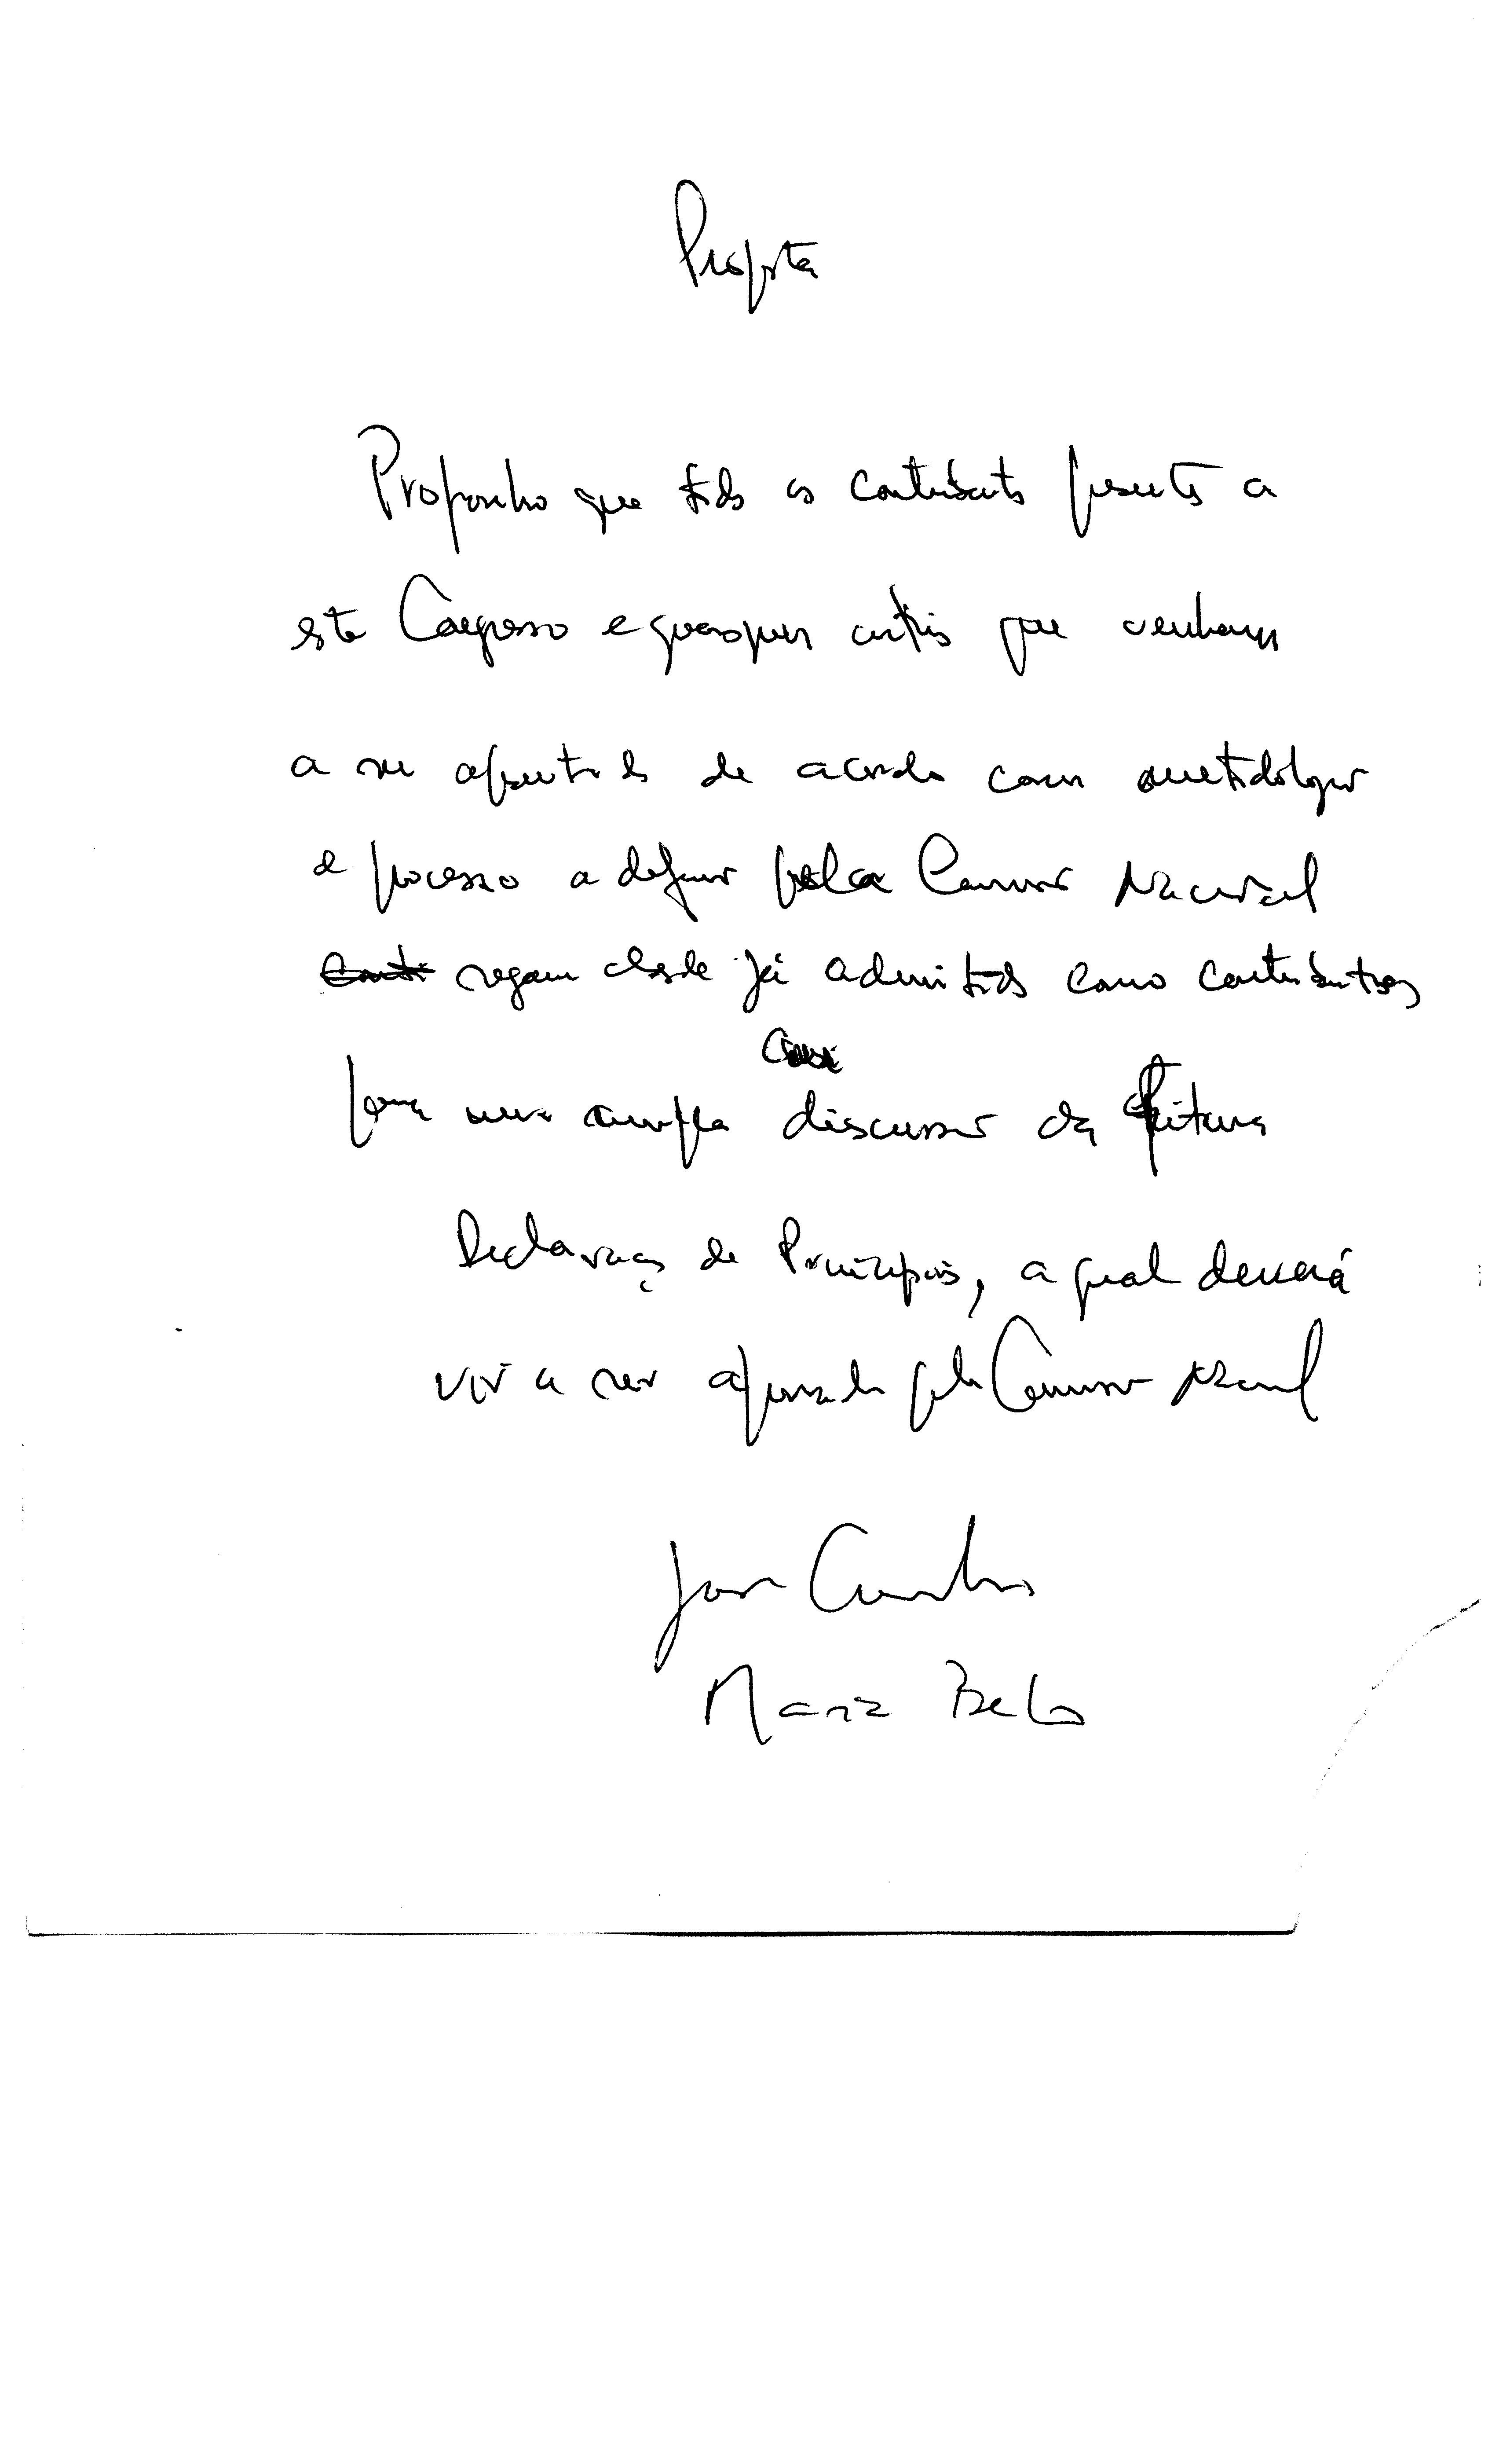 Proposta
Proponho que todos os contributos presentes a
este Congresso e quaisquer outros que venham
a ser apresentados de acordo com metodologia
e processo a definir pela Comissão Nacional
sejam desde já admitidos como contributos
para uma ampla discussão da futura
Declaração de Princípios, a qual deverá
vir a ser aprovada pela Comissão Nacional
Maria Belo